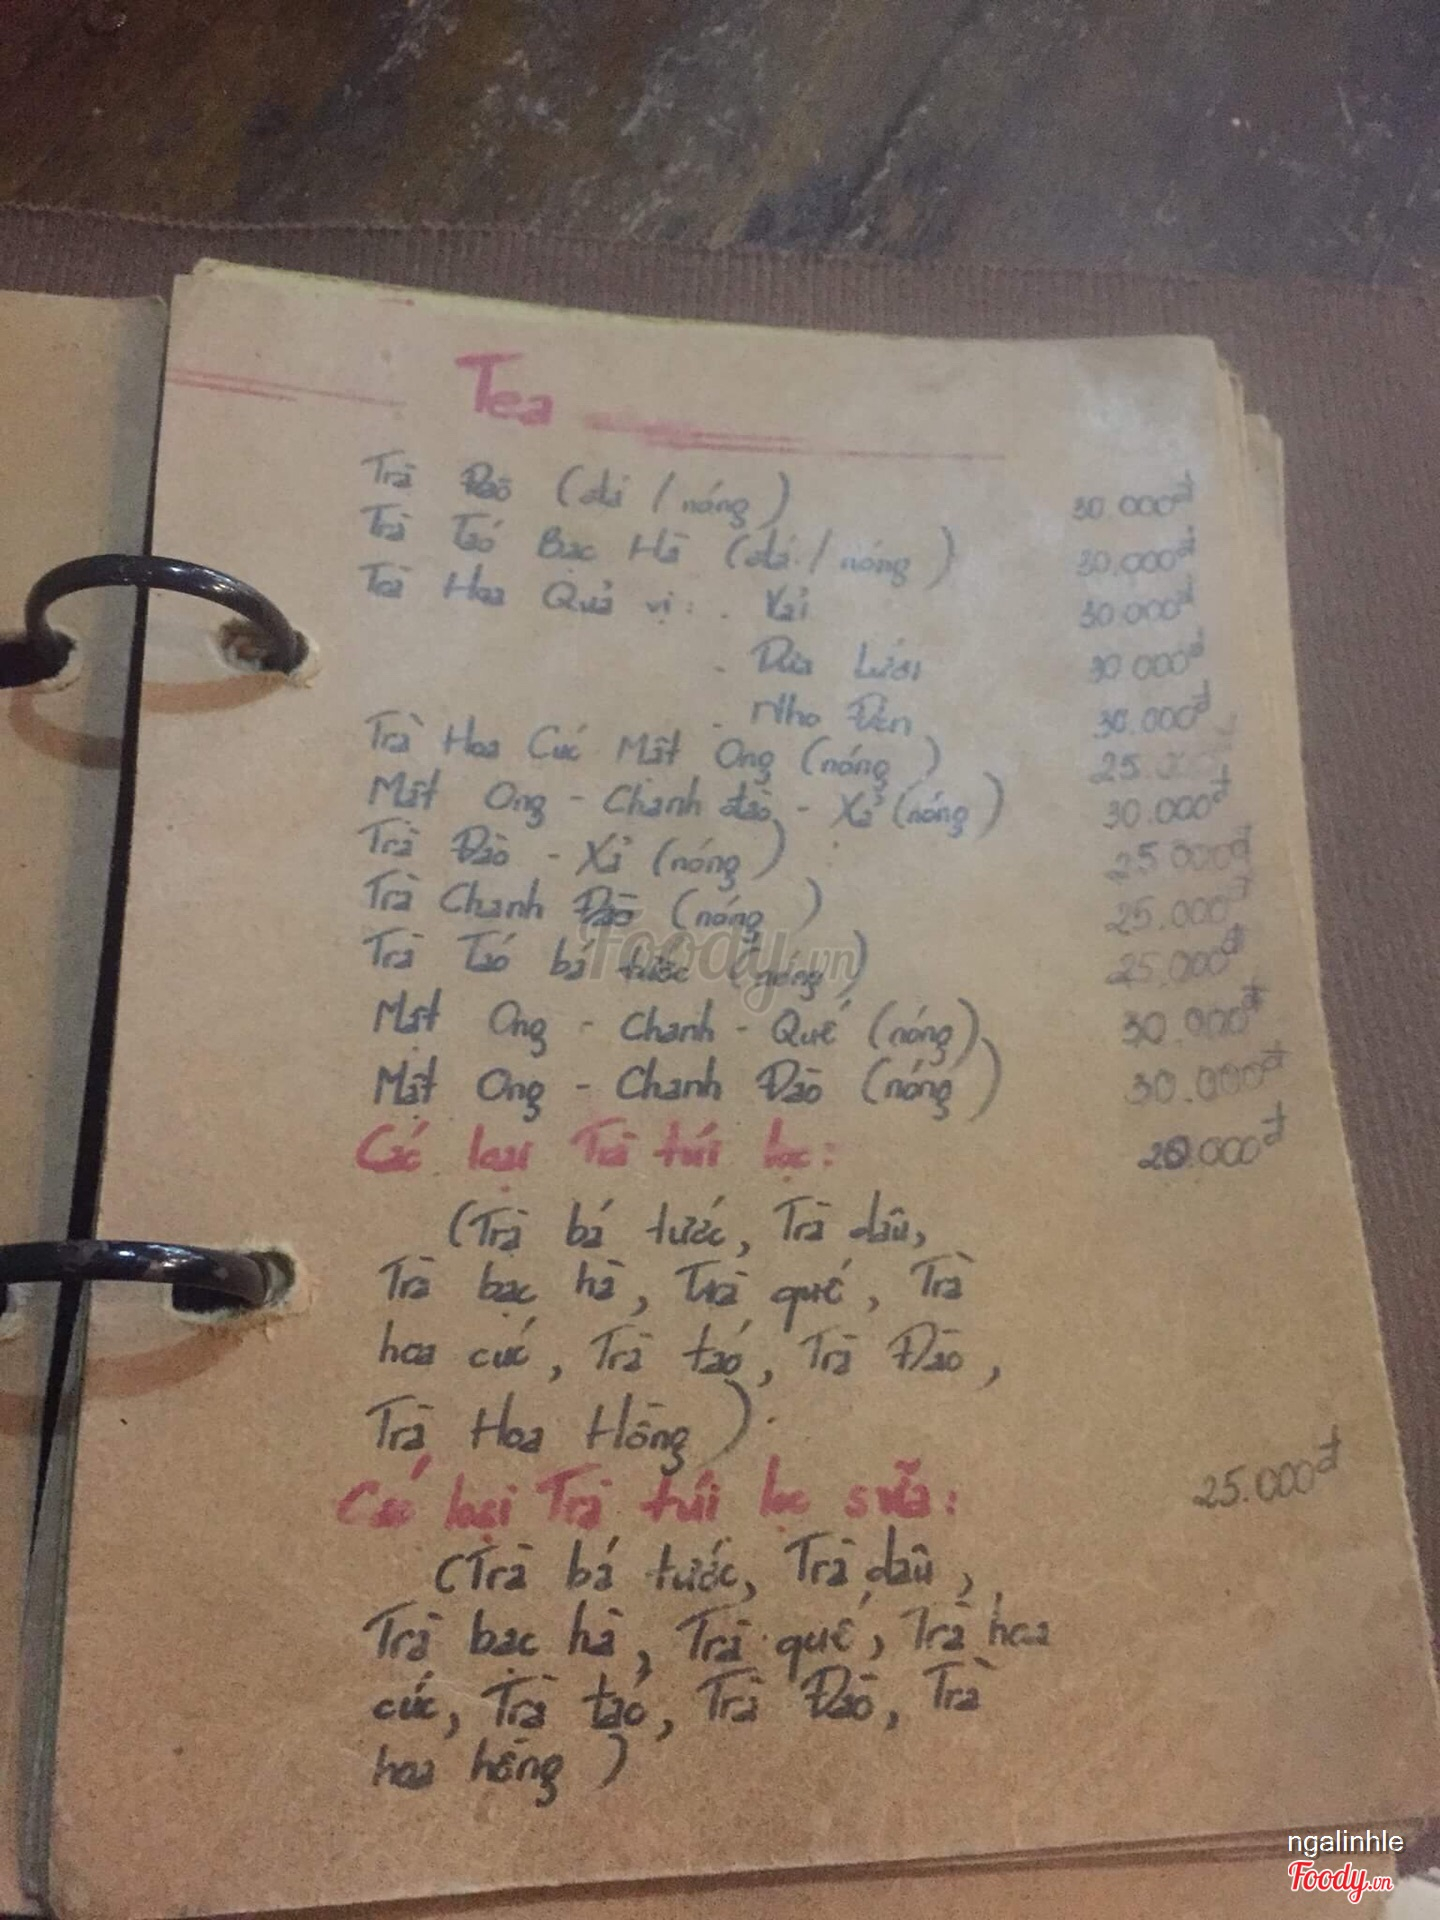 Tea
Trà Đào (đá / nóng) 30.000đ
Trà Táo Bạc Hà (đá / nóng) 30.000đ
Trà Hoa Quả vị: . Vải 30.000đ
. Dưa Lưới 30.000đ
. Nho Đen 30.000đ
Trà Hoa Cúc Mật Ong (nóng) 25.
Mật Ong - Chanh đào - Xả (nóng) 30.000đ
Trà Đào - Xả (nóng) 25.000đ
Trà Chanh Đào (nóng) 25.000đ
Trà Táo bá tước (nóng) 25.000đ
Mật Ong - Chanh - Quế (nóng) 30.000đ
Mật Ong - Chanh Đào (nóng) 30.000đ
Các loại Trà túi lọc: 20.000đ
(Trà bá tước, Trà dâu,
Trà bạc hà, Trà quế, Trà
hoa cúc, Trà táo, Trà Đào,
Trà Hoa Hồng).
Các loại Trà túi lọc sữa: 25.000đ
(Trà bá tước, Trà dâu,
Trà bạc hà, Trà quế, Trà hoa
cúc, Trà táo, Trà Đào, Trà
hoa hồng)
Foody.vn
ngalinhle
Foody.vn